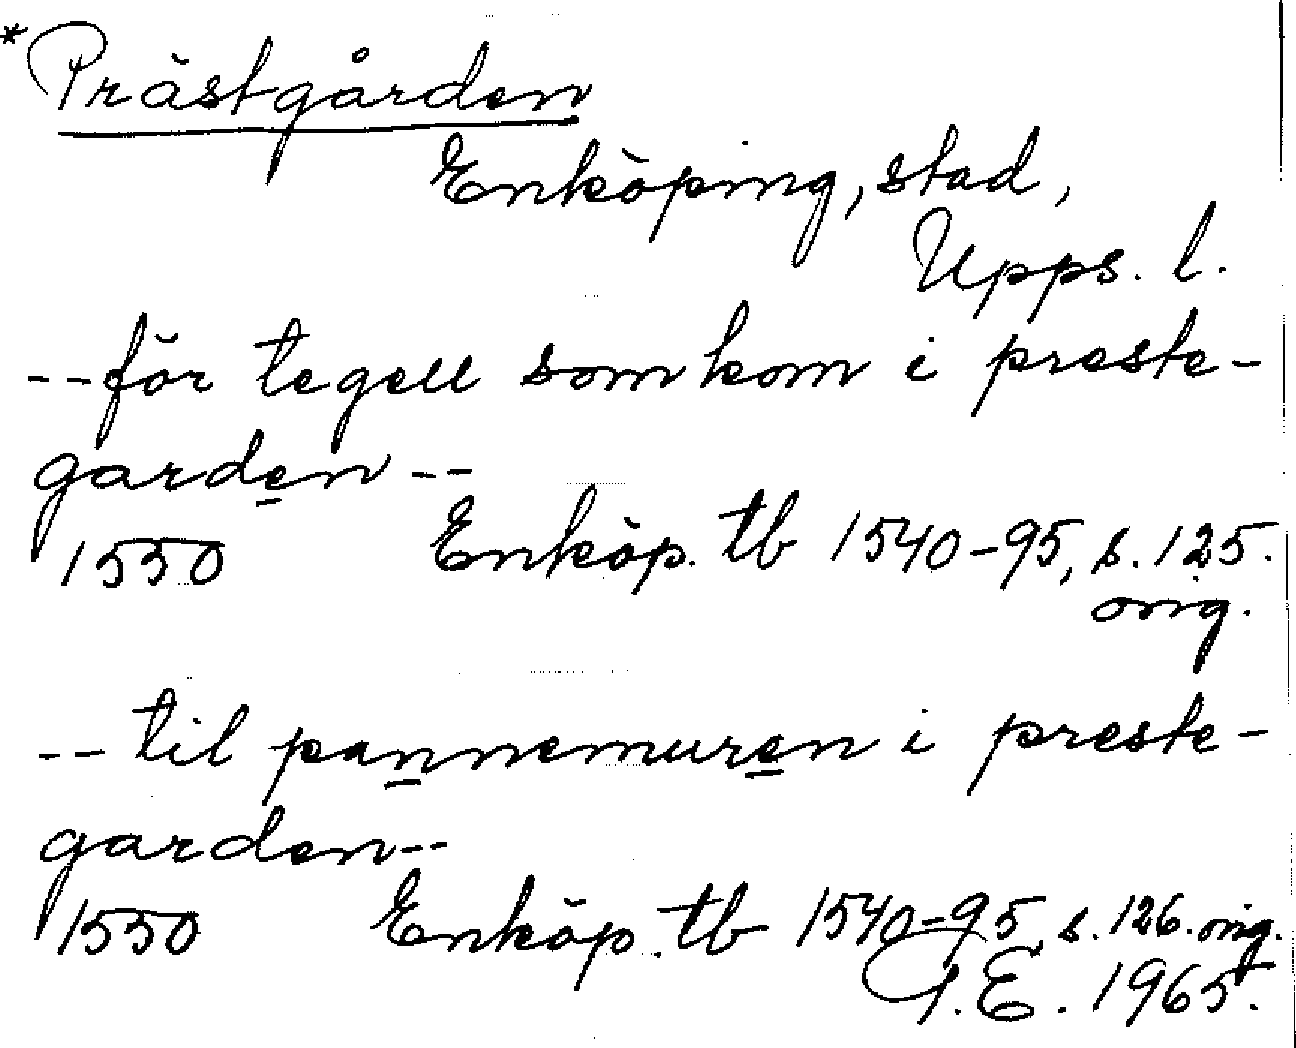 *Prästgården
Enköping, stad,
Upps. l.
--för tegell som kom i preste-
garden--
1550 Enköp. tb 1540-95, s. 125.
orig.
--til pannemuren i preste-
garden--
1550 Enköp. tb 1540-95 s. 126. orig.
G.E. 1965.